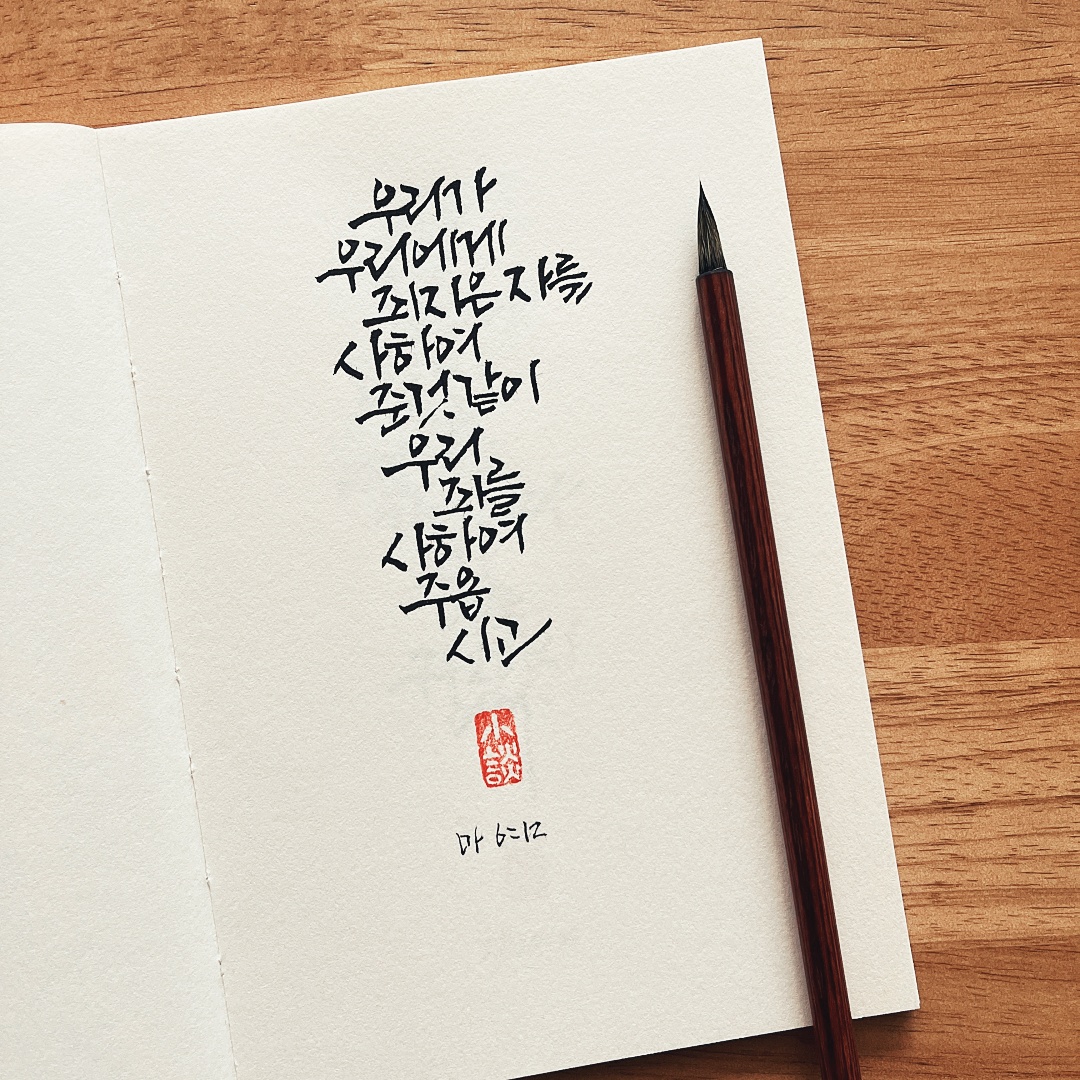 우리가
우리에게
죄지은 자를
사하여
준것 같이
우리
죄를
사하여
주옵
시고
小談
마 6:12